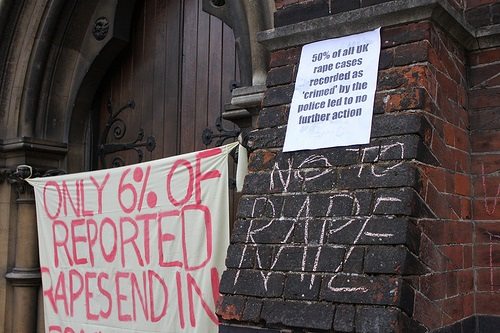 ONLY 6% OF
REPORTED
RAPES END IN
50% of all UK
rape cases
recorded as
'crimed' by the
police led to no
further action
NO TO
RAPE